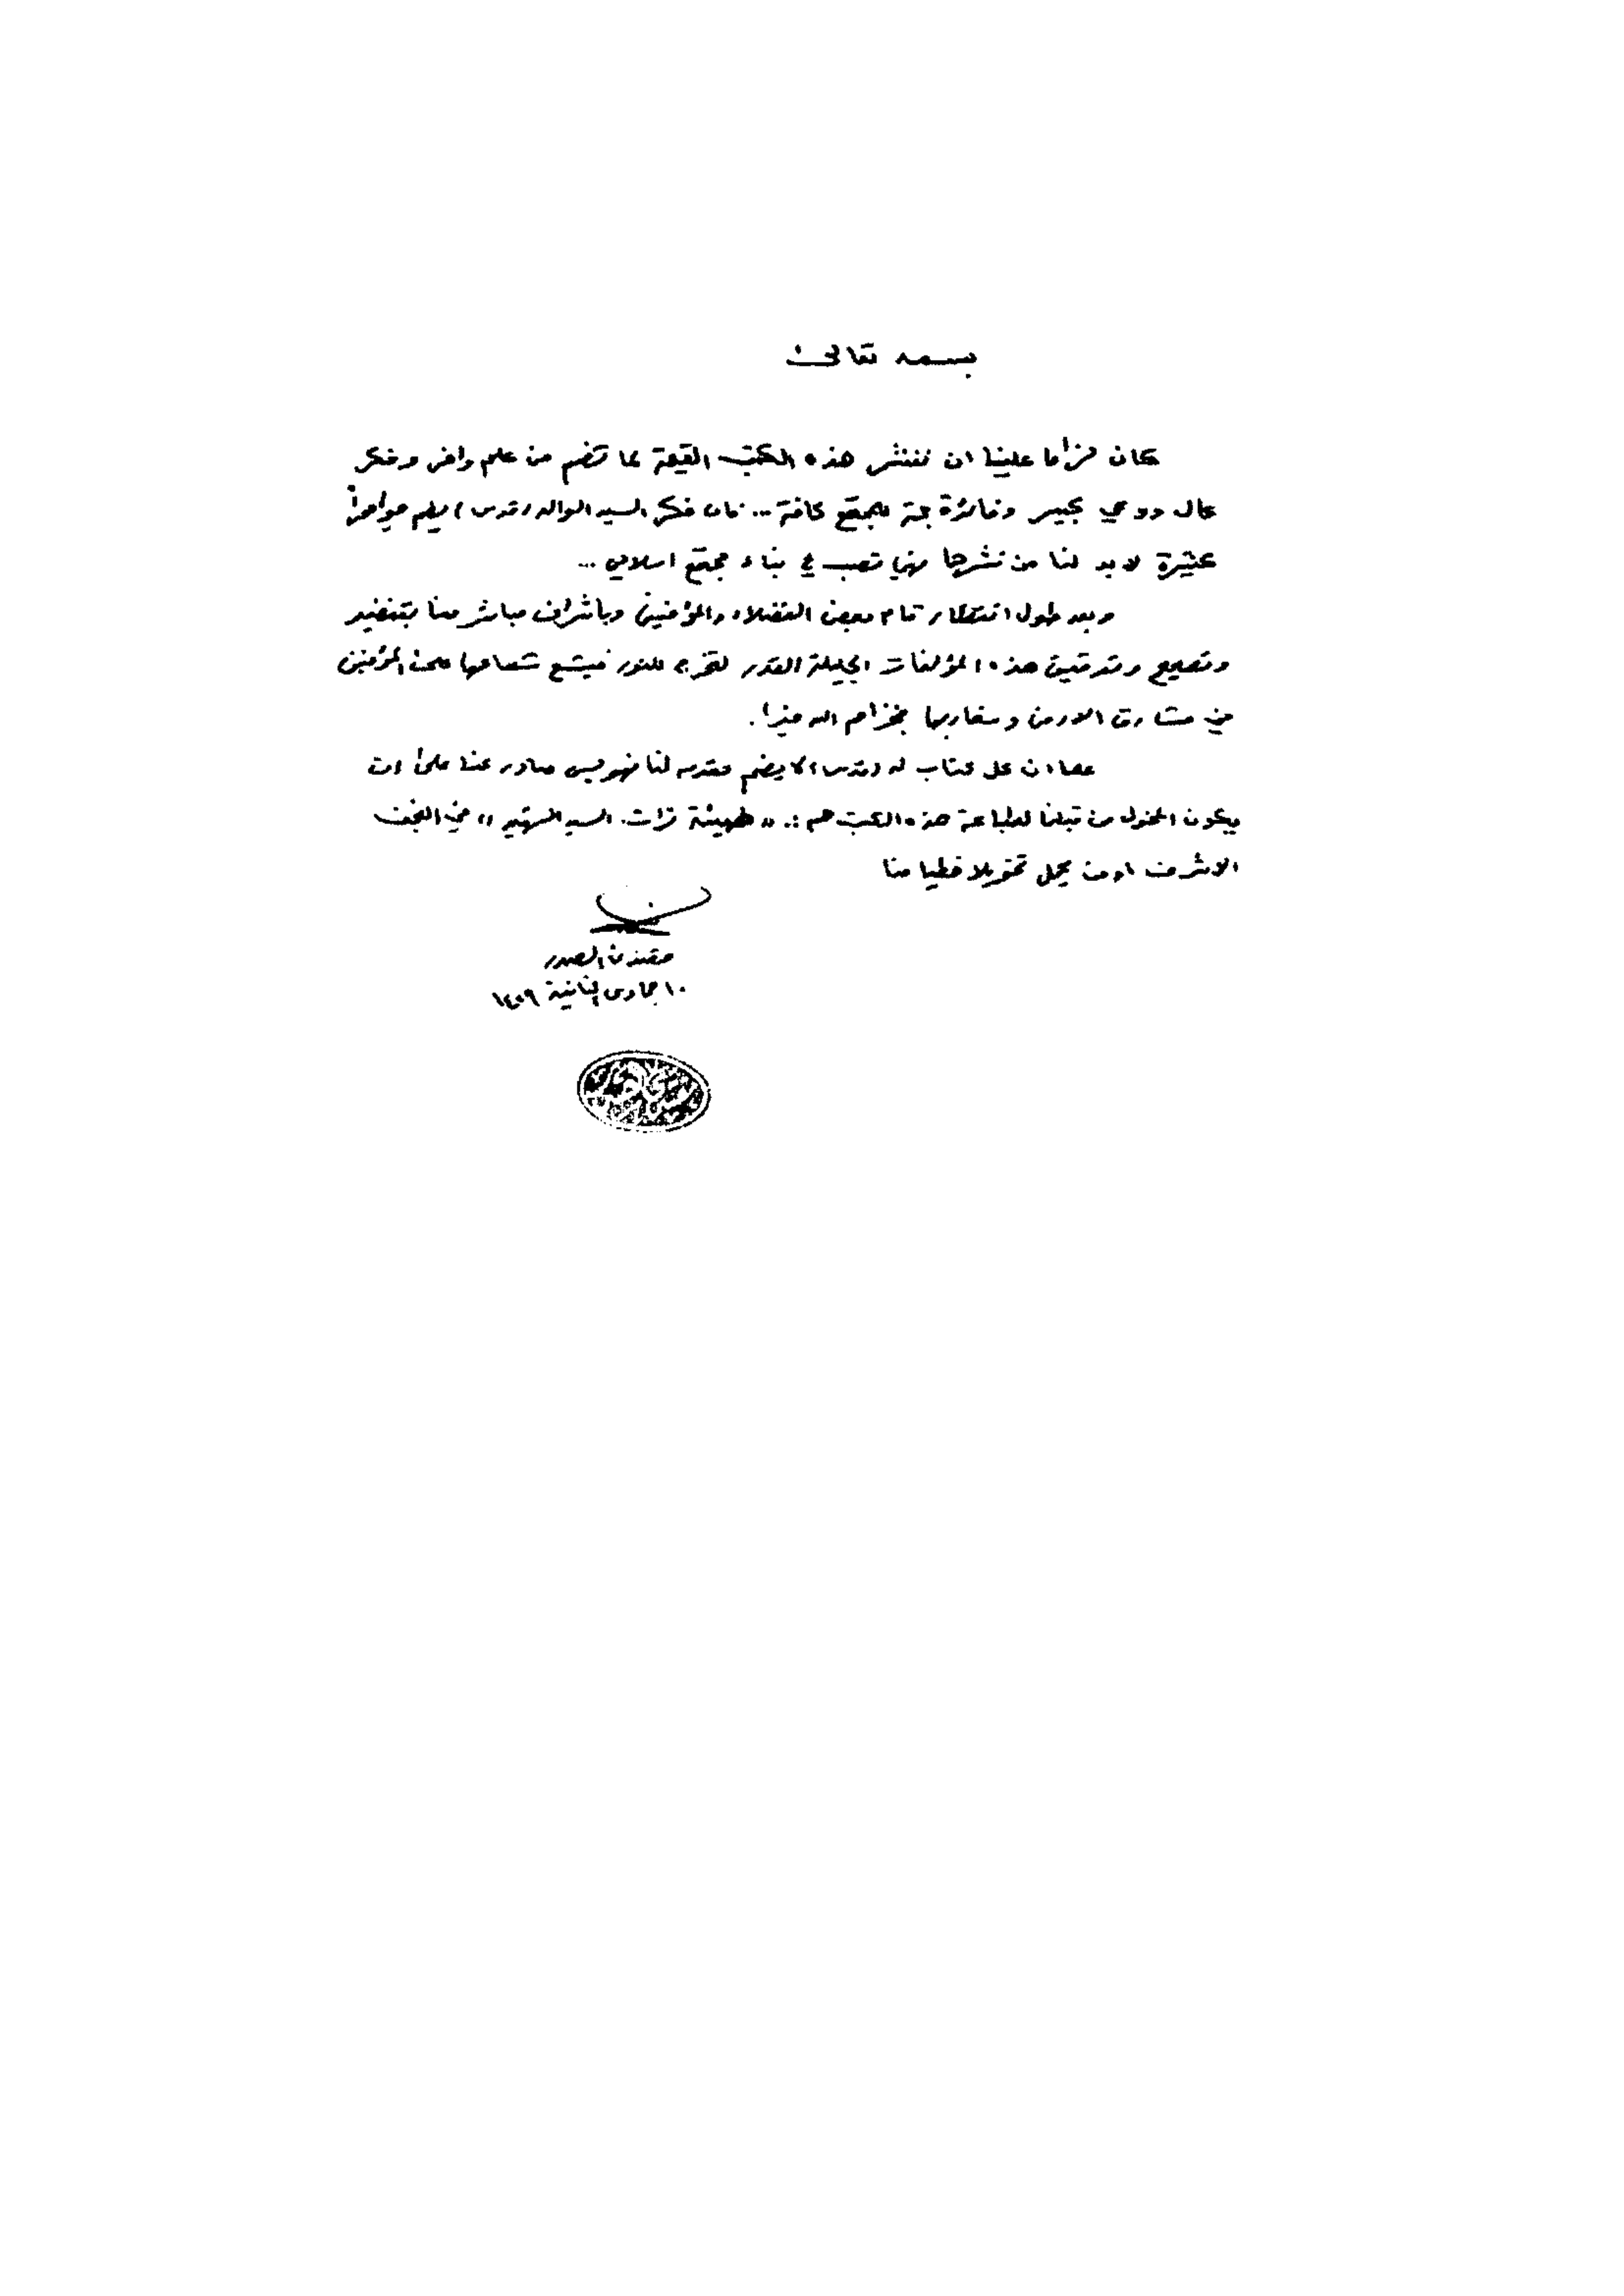 بسمه تعالى
كان لزاما علينا ان ننشر هذه الكتب القيمة لما تضم من علم وافر وفكر
عال ووعي كبير وفائدة جمة للمجتمع كافة ... فان فكر السيد الوالد (قدس) يضم جواهراً
كثيرة لابد لنا من نشرها فهي تصب في بناء مجتمع اسلامي ...
وبعد طول انتظار قام بعض الفضلاء والمؤمنين وباشراف مباشر منا بتنضيد
وتصحيح وتدقيق هذه المؤلفات الجليلة القدر لتخرج للنور فيشع شعاعها على المؤمنين
في مشارق الارض ومغاربها فجزاهم الله خيرا.
علما ان كل كتاب له (قدس) لا يضم مقدمه لنا فهو ليس صادر عنا على ان
يكون المخول من قبلنا لطباعة هذه الكتب هم :. " هيئة تراث السيد الشهيد " في النجف
الاشرف او من يحمل تخويلا خطيا منا
مقتدى الصدر
١٠ جمادى الثانية ١٤٢٩